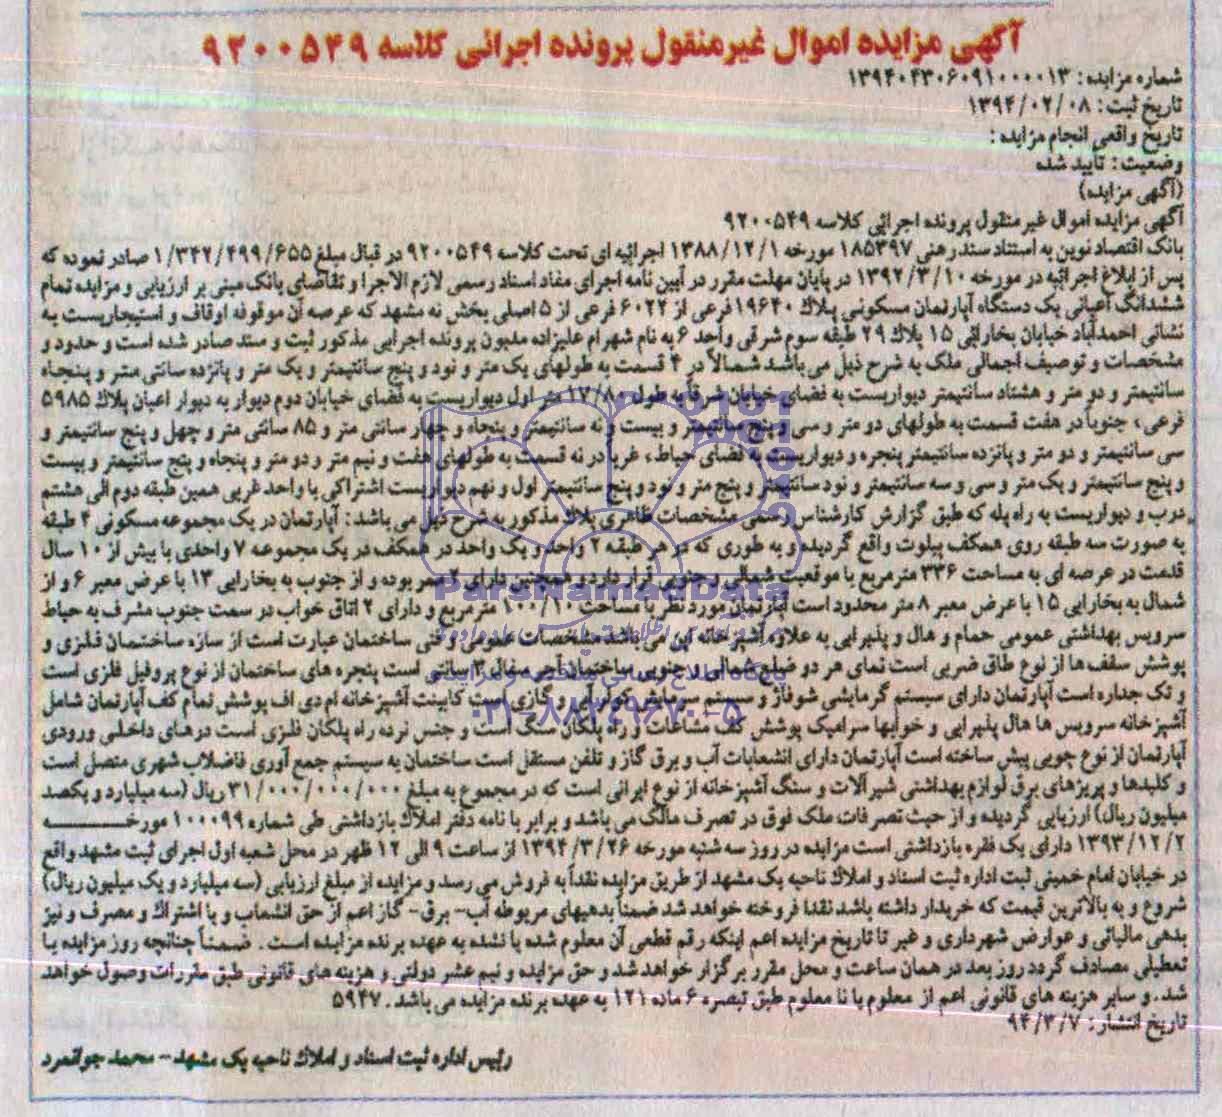 آگهی مزایده اموال غیرمنقول پرونده اجرائی کلاسه ۹۲۰۰۵۴۹
شماره مزایده: ۱۳۹۴۰۴۳۰۶۰۹۱۰۰۰۰۱۳
تاریخ ثبت: ۱۳۹۴/۰۲/۰۸
تاریخ واقعی انجام مزایده:
وضعیت: تأیید شده
(آگهی مزایده)
آگهی مزایده اموال غیرمنقول پرونده اجرائی کلاسه ۹۲۰۰۵۴۹
بانک اقتصاد نوین به استناد سند رهنی ۱۸۵۳۹۷ مورخه ۱۳۸۸/۱۲/۱ اجرائیه ای تحت کلاسه ۹۲۰۰۵۴۹ در قبال مبلغ ۱/۳۴۲/۴۹۹/۶۵۵ صادر نموده که
پس از ابلاغ اجرائیه در مورخه ۱۳۹۲/۳/۱۰ در پایان مهلت مقرر در آیین نامه اجرای مفاد اسناد رسمی لازم الاجرا و تقاضای بانک مبنی بر ارزیابی و مزایده تمام
ششدانگ اعیانی یک دستگاه آپارتمان مسکونی پلاک ۱۹۶۴۰ فرعی از ۶۰۲۴ فرعی از ۵ اصلی بخش نه مشهد که عرصه آن موقوفه اوقاف و استیجاریست به
نشانی احمدآباد خیابان بخارائی ۱۵ پلاک ۲۹ طبقه سوم شرقی واحد ۶ به نام شهرام علیزاده مدیون پرونده اجرایی مذکور ثبت و سند صادر شده است و حدود و
مشخصات و توصیف اجمالی ملک به شرح ذیل می باشد شمالاً در ۴ قسمت به طولهای یک متر و نود و پنج سانتیمتر و یک متر و پانزده سانتی متر و پنجاه
سانتیمتر و دو متر و هشتاد سانتیمتر دیواریست به فضای خیابان شرقاً به طول ۱۷/۸۰ متر اول دیواریست به فضای خیابان دوم دیوار به دیوار اعیان پلاک ۵۹۸۵
فرعی، جنوباً در هفت قسمت به طولهای دو متر و سی و پنج سانتیمتر و بیست و نه سانتیمتر و پنجاه و چهار سانتی متر و ۸۵ سانتی متر و چهل و پنج سانتیمتر و
سی سانتیمتر و دو متر و پانزده سانتیمتر پنجره و دیواریست به فضای حیاط، غرباً در نه قسمت به طولهای هفت و نیم متر و دو متر و پنجاه و پنج سانتیمتر و بیست
و پنج سانتیمتر و یک متر و سی و سه سانتیمتر و نود سانتیمتر و پنج متر و نود و پنج سانتیمتر اول و نهم دیواریست اشتراکی با واحد غربی همین طبقه دوم الی هشتم
درب و دیواریست به راه پله که طبق گزارش کارشناس رسمی مشخصات ظاهری پلاک مذکور به شرح ذیل می باشد: آپارتمان در یک مجموعه مسکونی ۴ طبقه
به صورت سه طبقه روی همکف پیلوت واقع گردیده و به طوری که در هر طبقه ۲ واحد و یک واحد در همکف در یک مجموعه ۷ واحدی با بیش از ۱۰ سال
قدمت در عرصه ای به مساحت ۳۳۶ مترمربع با موقعیت شمالی و جنوبی قرار دارد و همچنین دارای ۲ ممر بوده و از جنوب به بخارایی ۱۳ با عرض معبر ۶ و از
شمال به بخارایی ۱۵ با عرض معبر ۸ متر محدود است آپارتمان مورد نظر با مساحت ۱۰۰/۱۰ مترمربع و دارای ۲ اتاق خواب در سمت جنوب مشرف به حیاط
سرویس بهداشتی عمومی حمام و هال و پذیرایی به علاوه آشپزخانه اپن می باشد مشخصات عمومی و فنی ساختمان عبارت است از سازه ساختمان فلزی و
پوشش سقف ها از نوع طاق ضربی است نمای هر دو ضلع شمالی و جنوبی ساختمان آجر سفال ۳ سانتی است پنجره های ساختمان از نوع پروفیل فلزی است
و تک جداره است آپارتمان دارای سیستم گرمایشی شوفاژ و سیستم سرمایش کولر آبی و گازی است کابینت آشپزخانه ام دی اف پوشش تمام کف آپارتمان شامل
آشپزخانه سرویس ها هال پذیرایی و خوابها سرامیک پوشش کف مشاعات و راه پلکان سنگ است و جنس نرده راه پلکان فلزی است درهای داخلی ورودی
آپارتمان از نوع چوبی پیش ساخته است آپارتمان دارای انشعابات آب و برق گاز و تلفن مستقل است ساختمان به سیستم جمع آوری فاضلاب شهری متصل است
و کلیدها و پریزهای برق لوازم بهداشتی شیرآلات و سنگ آشپزخانه از نوع ایرانی است که در مجموع به مبلغ ۳۱/۰۰۰/۰۰۰/۰۰۰ ریال (سه میلیارد و یکصد
میلیون ریال) ارزیابی گردیده و از حیث تصرفات ملک فوق در تصرف مالک می باشد و برابر با نامه دفتر املاک بازداشتی طی شماره ۱۰۰۰۹۹ مورخـــه
۱۳۹۳/۱۲/۲ دارای یک فقره بازداشتی است مزایده در روز سه شنبه مورخه ۱۳۹۴/۳/۲۶ از ساعت ۹ الی ۱۲ ظهر در محل شعبه اول اجرای ثبت مشهد واقع
در خیابان امام خمینی ثبت اداره ثبت اسناد و املاک ناحیه یک مشهد از طریق مزایده نقداً به فروش می رسد و مزایده از مبلغ ارزیابی (سه میلیارد و یک میلیون ریال)
شروع و به بالاترین قیمت که خریدار داشته باشد نقدا فروخته خواهد شد ضمناً بدهیهای مربوطه آب- برق- گاز اعم از حق انشعاب و یا اشتراک و مصرف و نیز
بدهی مالیاتی و عوارض شهرداری و غیر تا تاریخ مزایده اعم اینکه رقم قطعی آن معلوم شده یا نشده به عهده برنده مزایده است. ضمناً چنانچه روز مزایده با
تعطیلی مصادف گردد روز بعد در همان ساعت و محل مقرر برگزار خواهد شد و حق مزایده و نیم عشر دولتی و هزینه های قانونی طبق مقررات وصول خواهد
شد. و سایر هزینه های قانونی اعم از معلوم یا نا معلوم طبق تبصره ۶ ماده ۱۲۱ به عهده برنده مزایده می باشد. ۵۹۴۷
تاریخ انتشار: ۹۴/۳/۷
رئیس اداره ثبت اسناد و املاک ناحیه یک مشهد- محمد جوانمرد
ParsNamadData
پایگاه اطلاع رسانی مناقصه و مزایده
۰۲۱-۸۸۳۴۹۶۷۰-۵